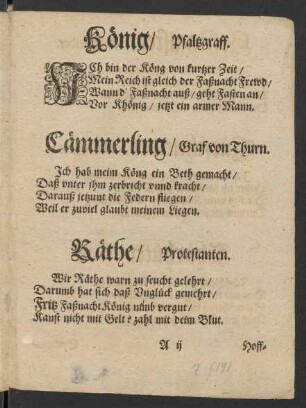 König/ Pfaltzgraff.
ICh bin der Köng von kurtzer Zeit/
Mein Reich ist gleich der Faßnacht Frewd/
Wann d' Faßnacht auß/ geht Fasten an/
Vor Khönig/ jetzt ein armer Mann.
Cämmerling/ Graf von Thurn.
Ich hab meim Köng ein Beth gemacht/
Daß vnter jhm zerbricht vnnd kracht/
Darauß jetzunt die Federn fliegen/
Weil er zuviel glaubt meinem Liegen.
Räthe/ Protestanten.
Wir Räthe warn zu feucht gelehrt/
Darumb hat sich daß Vnglück gemehrt/
Fritz Faßnacht König nimb vergut/
Kanst nicht mit Gelt? zahl mit deim Blut.
A ij Hoff-